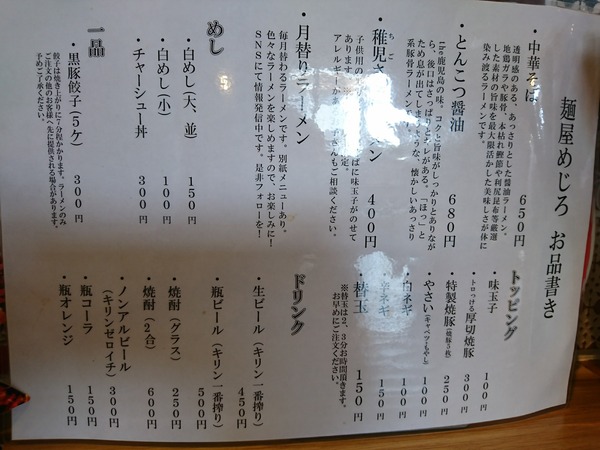 麺屋めじろ お品書き
・中華そば 650円
透明感のある、あっさりとした醤油ラーメン。
地鶏ガラや豚骨、本枯れ鰹節や利尻昆布等厳選
した素材の旨味を最大限活かした美味しさが体に
染み渡るラーメンです。
・とんこつ醤油 680円
the鹿児島の味。コクと旨味がしっかりとありなが
ら、後口はさっぱりとキレがある。「ほっ」と
ため息が出てしまうような、懐かしいあっさり
系豚骨ラーメンです。
ちご
・稚児さ ン 400円
子供用の ばに味玉子がのせて
あります。 定。
アレルギー 子さんもご相談ください。
・月替りラーメン
毎月替わるラーメンです。別紙メニューあり。
色々なラーメンを楽しめますので、お楽しみに!
SNSにて情報発信中です。是非フォローを!
めし
・白めし(大、並) 150円
・白めし(小) 100円
・チャーシュー丼 300円
一品
・黒豚餃子(5ケ) 300円
餃子は焼き上がりに7分程かかります。ラーメンのみ
ご注文の他のお客様へ先に提供される場合があります。
予めご了承ください。
トッピング
・味玉子 100円
・トロっける厚切焼豚 300円
・特製焼豚(焼豚5枚) 250円
・やさい(キャベツ・もやし) 100円
・白ネギ 100円
・辛ネギ 150円
・替玉 150円
※替玉は2、3分お時間頂きます。
お早めにご注文ください。
ドリンク
・生ビール(キリン一番搾り) 450円
・瓶ビール(キリン一番搾り) 500円
・焼酎(グラス) 250円
・焼酎(2合) 600円
・ノンアルビール
(キリンゼロイチ) 300円
・瓶コーラ 150円
・瓶オレンジ 150円